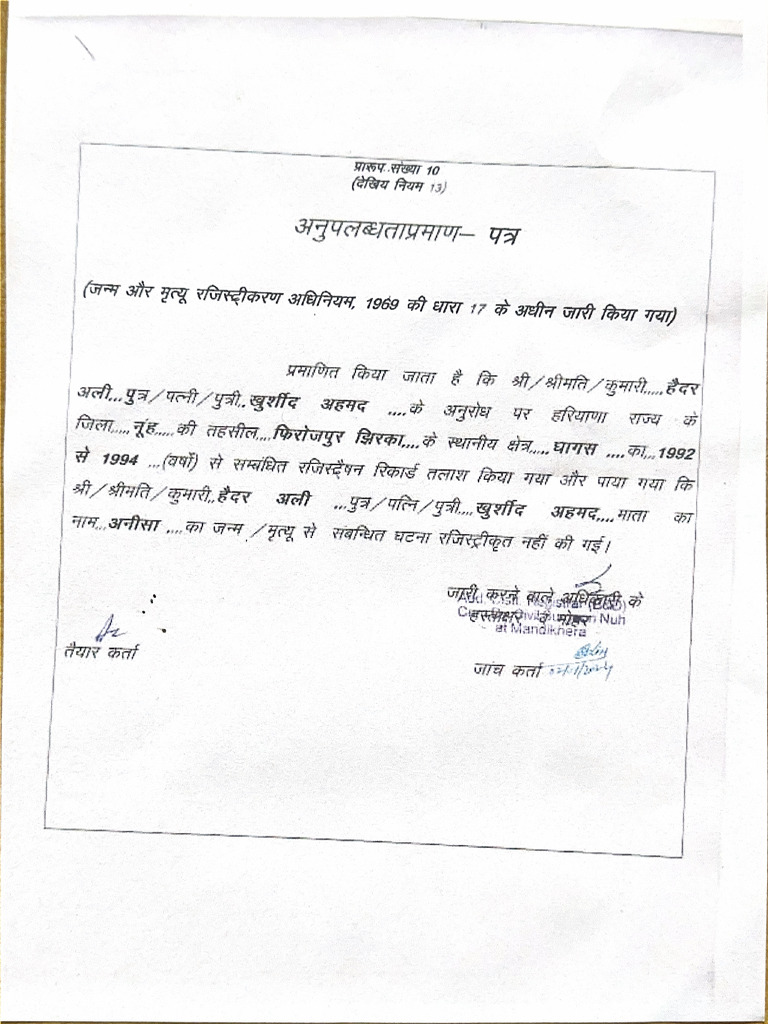 प्रारूप संख्या 10
(देखिय नियम 13)
अनुपलब्धताप्रमाण– पत्र
(जन्म और मृत्यू रजिस्ट्रीकरण अधिनियम, 1969 की धारा 17 के अधीन जारी किया गया)
प्रमाणित किया जाता है कि श्री/श्रीमति/कुमारी.....हैदर
अली...पुत्र/पत्नी/पुत्री..खुर्शीद अहमद ....के अनुरोध पर हरियाणा राज्य के
जिला.....नूंह.....की तहसील....फिरोजपुर झिरका....के स्थानीय क्षेत्र.....घागस ....का...1992
से 1994 ...(वर्षो) से सम्बंधित रजिस्ट्रैषन रिकार्ड तलाश किया गया और पाया गया कि
श्री/श्रीमति/कुमारी..हैदर अली ...पुत्र/पत्नि/पुत्री....खुर्शीद अहमद....माता का
नाम...अनीसा ....का जन्म /मृत्यू से संबन्धित घटना रजिस्ट्रीकृत नहीं की गई।
जारी करने वाले अधिकारी के
हस्ताक्षर व मोहर
Nuh
at Mandikhera
तैयार कर्ता
जांच कर्ता